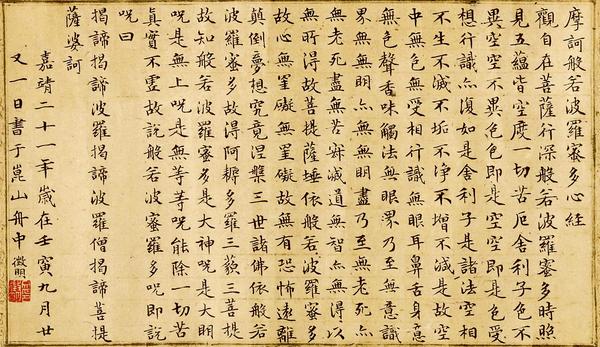 摩訶般若波羅蜜多心經
觀自在菩薩行深般若波羅蜜多時照
見五蘊皆空度一切苦厄舍利子色不
異空空不異色色即是空空即是色受
想行識亦復如是舍利子是諸法空相
不生不滅不垢不淨不增不減是故空
中無色無受相行識無眼耳鼻舌身意
無色聲香味觸法無眼界乃至無意識
界無無明亦無無明盡乃至無老死亦
無老死盡無苦寂滅道無智亦無得以
無所得故菩提薩埵依般若波羅蜜多
故心無罣礙無罣礙故無有恐怖遠離
顛倒夢想究竟涅槃三世諸佛依般若
波羅蜜多故得阿耨多羅三藐三菩提
故知般若波羅蜜多是大神呪是大明
呪是無上呪是無等等呪能除一切苦
眞實不虛故說般若波蜜羅多呪即說
呪曰
揭諦揭諦波羅揭諦波羅僧揭諦菩提
薩婆訶
嘉靖二十一年歲在壬寅九月廿
又一日書于崑山舟中 徵明